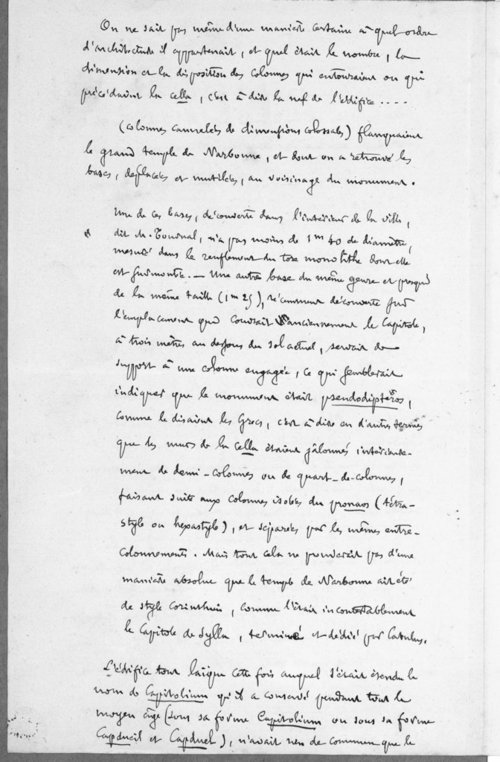 On ne sait pas même d'une manière certaine à quel ordre
d'architecture il appartenait, et quel était le nombre, la
dimension et la disposition des colonnes qui entouraient ou qui
précédaient la cella, c'est à dire la nef de l'édifice....
(colonnes cannelées de dimensions colossales) flanquaient
le grand temple de Narbonne, et dont on a retrouvé les
bases, déplacées et mutilées, au voisinage du monument.
Une de ces bases, découverte dans l'intérieur de la ville,
dit M. Tournal, n'a pas moins de 1m 40 de diamètre,
mesuré dans le renflement du tore monolithe dont elle
est surmontée. — Une autre base du même genre et presque
de la même taille (1m 25), récemment découverte sur
l'emplacement que couvrait anciennement le Capitole,
à trois mètres au dessous du sol actuel, servait de
support à une colonne engagée, ce qui semblerait
indiquer que le monument était pseudodiptèros,
comme le disaient les Grecs, c'est à dire en d'autres termes
que les murs de la cella étaient jalonnés intérieure-
ment de demi-colonnes ou de quart-de-colonnes,
faisant suite aux colonnes isolées du pronaos (tétra-
style ou hexastyle), et séparées par les mêmes entre-
colonnements. Mais tout cela ne prouverait pas d'une
manière absolue que le temple de Narbonne ait été
de style corinthien, comme l'était incontestablement
le Capitole de Sylla, terminé et dédié par Catulus.
L'édifice tout laïque cette fois auquel s'était étendu le
nom de Capitolium qu'il a conservé pendant tout le
moyen âge (sous sa forme Capitolium ou sous sa forme
Capdueil et Capduel), n'avait rien de commun que le